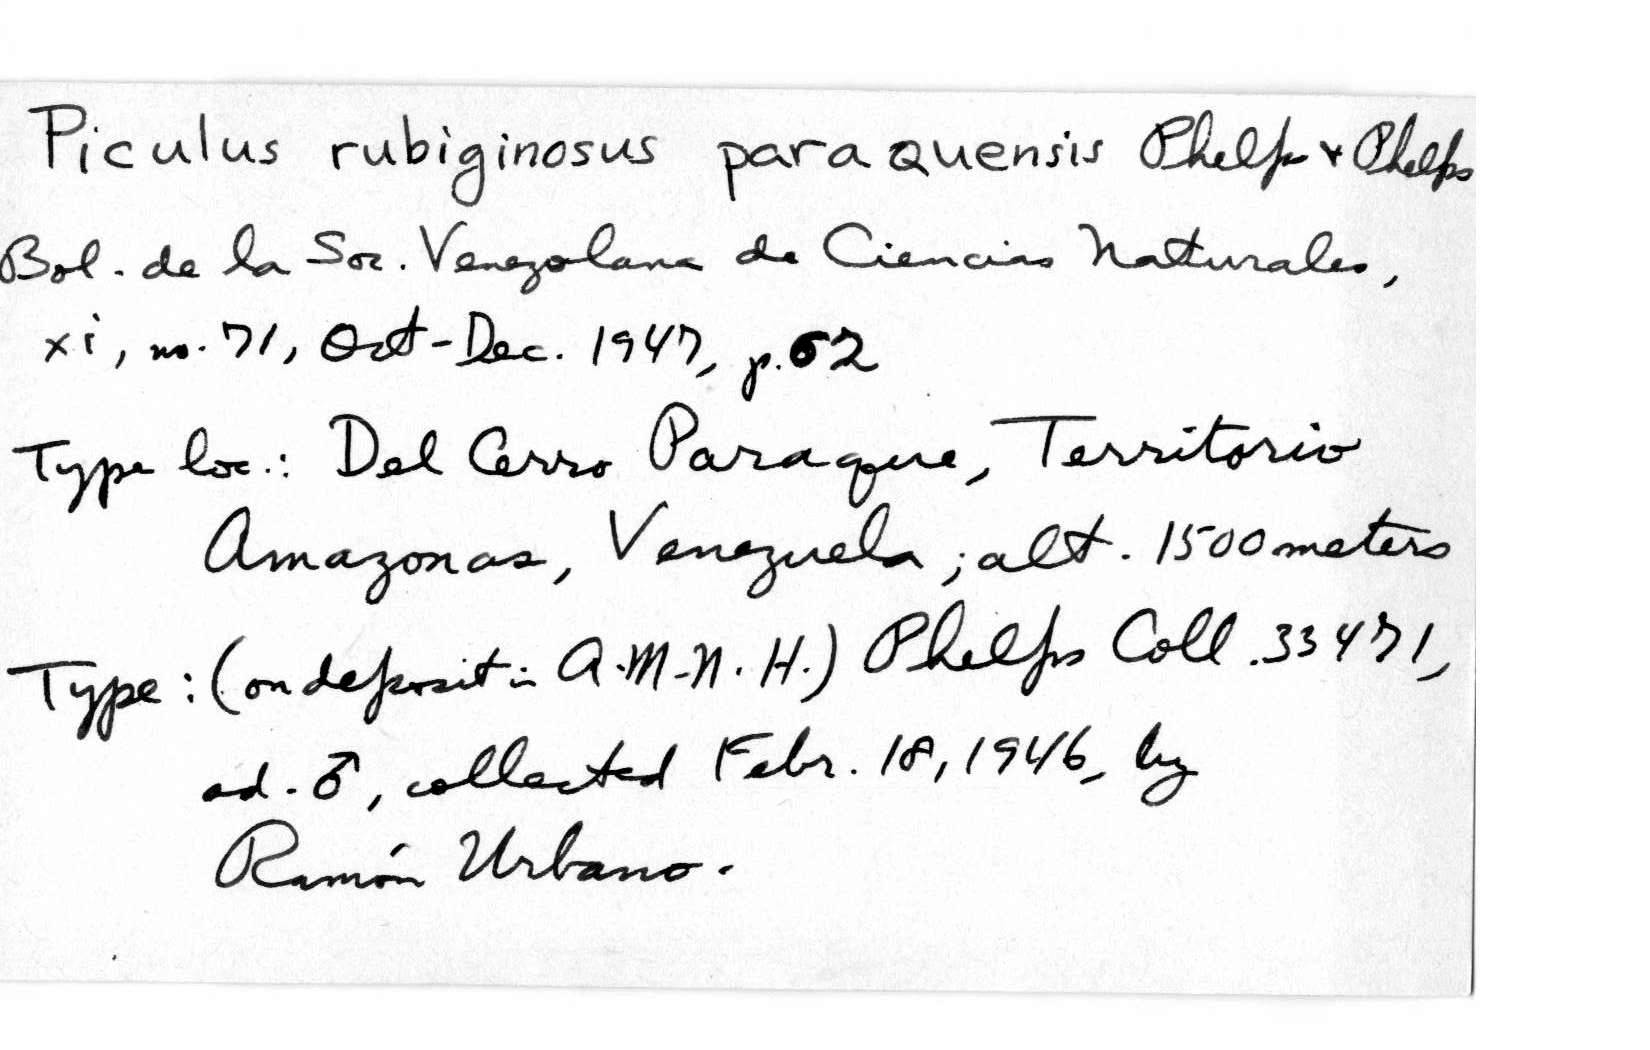 Piculus rubiginosus paraquensis Phelps & Phelps
Bol. de la Soc. Venezolana de Ciencias Naturales,
xi, no. 71, Oct-Dec. 1947, p. 62
Type loc.: Del Cerro Paraque, Territorio
Amazonas, Venezuela; alt. 1500 meters
Type: (on deposit in A.M.N.H.) Phelps Coll. 33471,
ad. ♂, collected Febr. 18, 1946, by
Ramón Urbano.